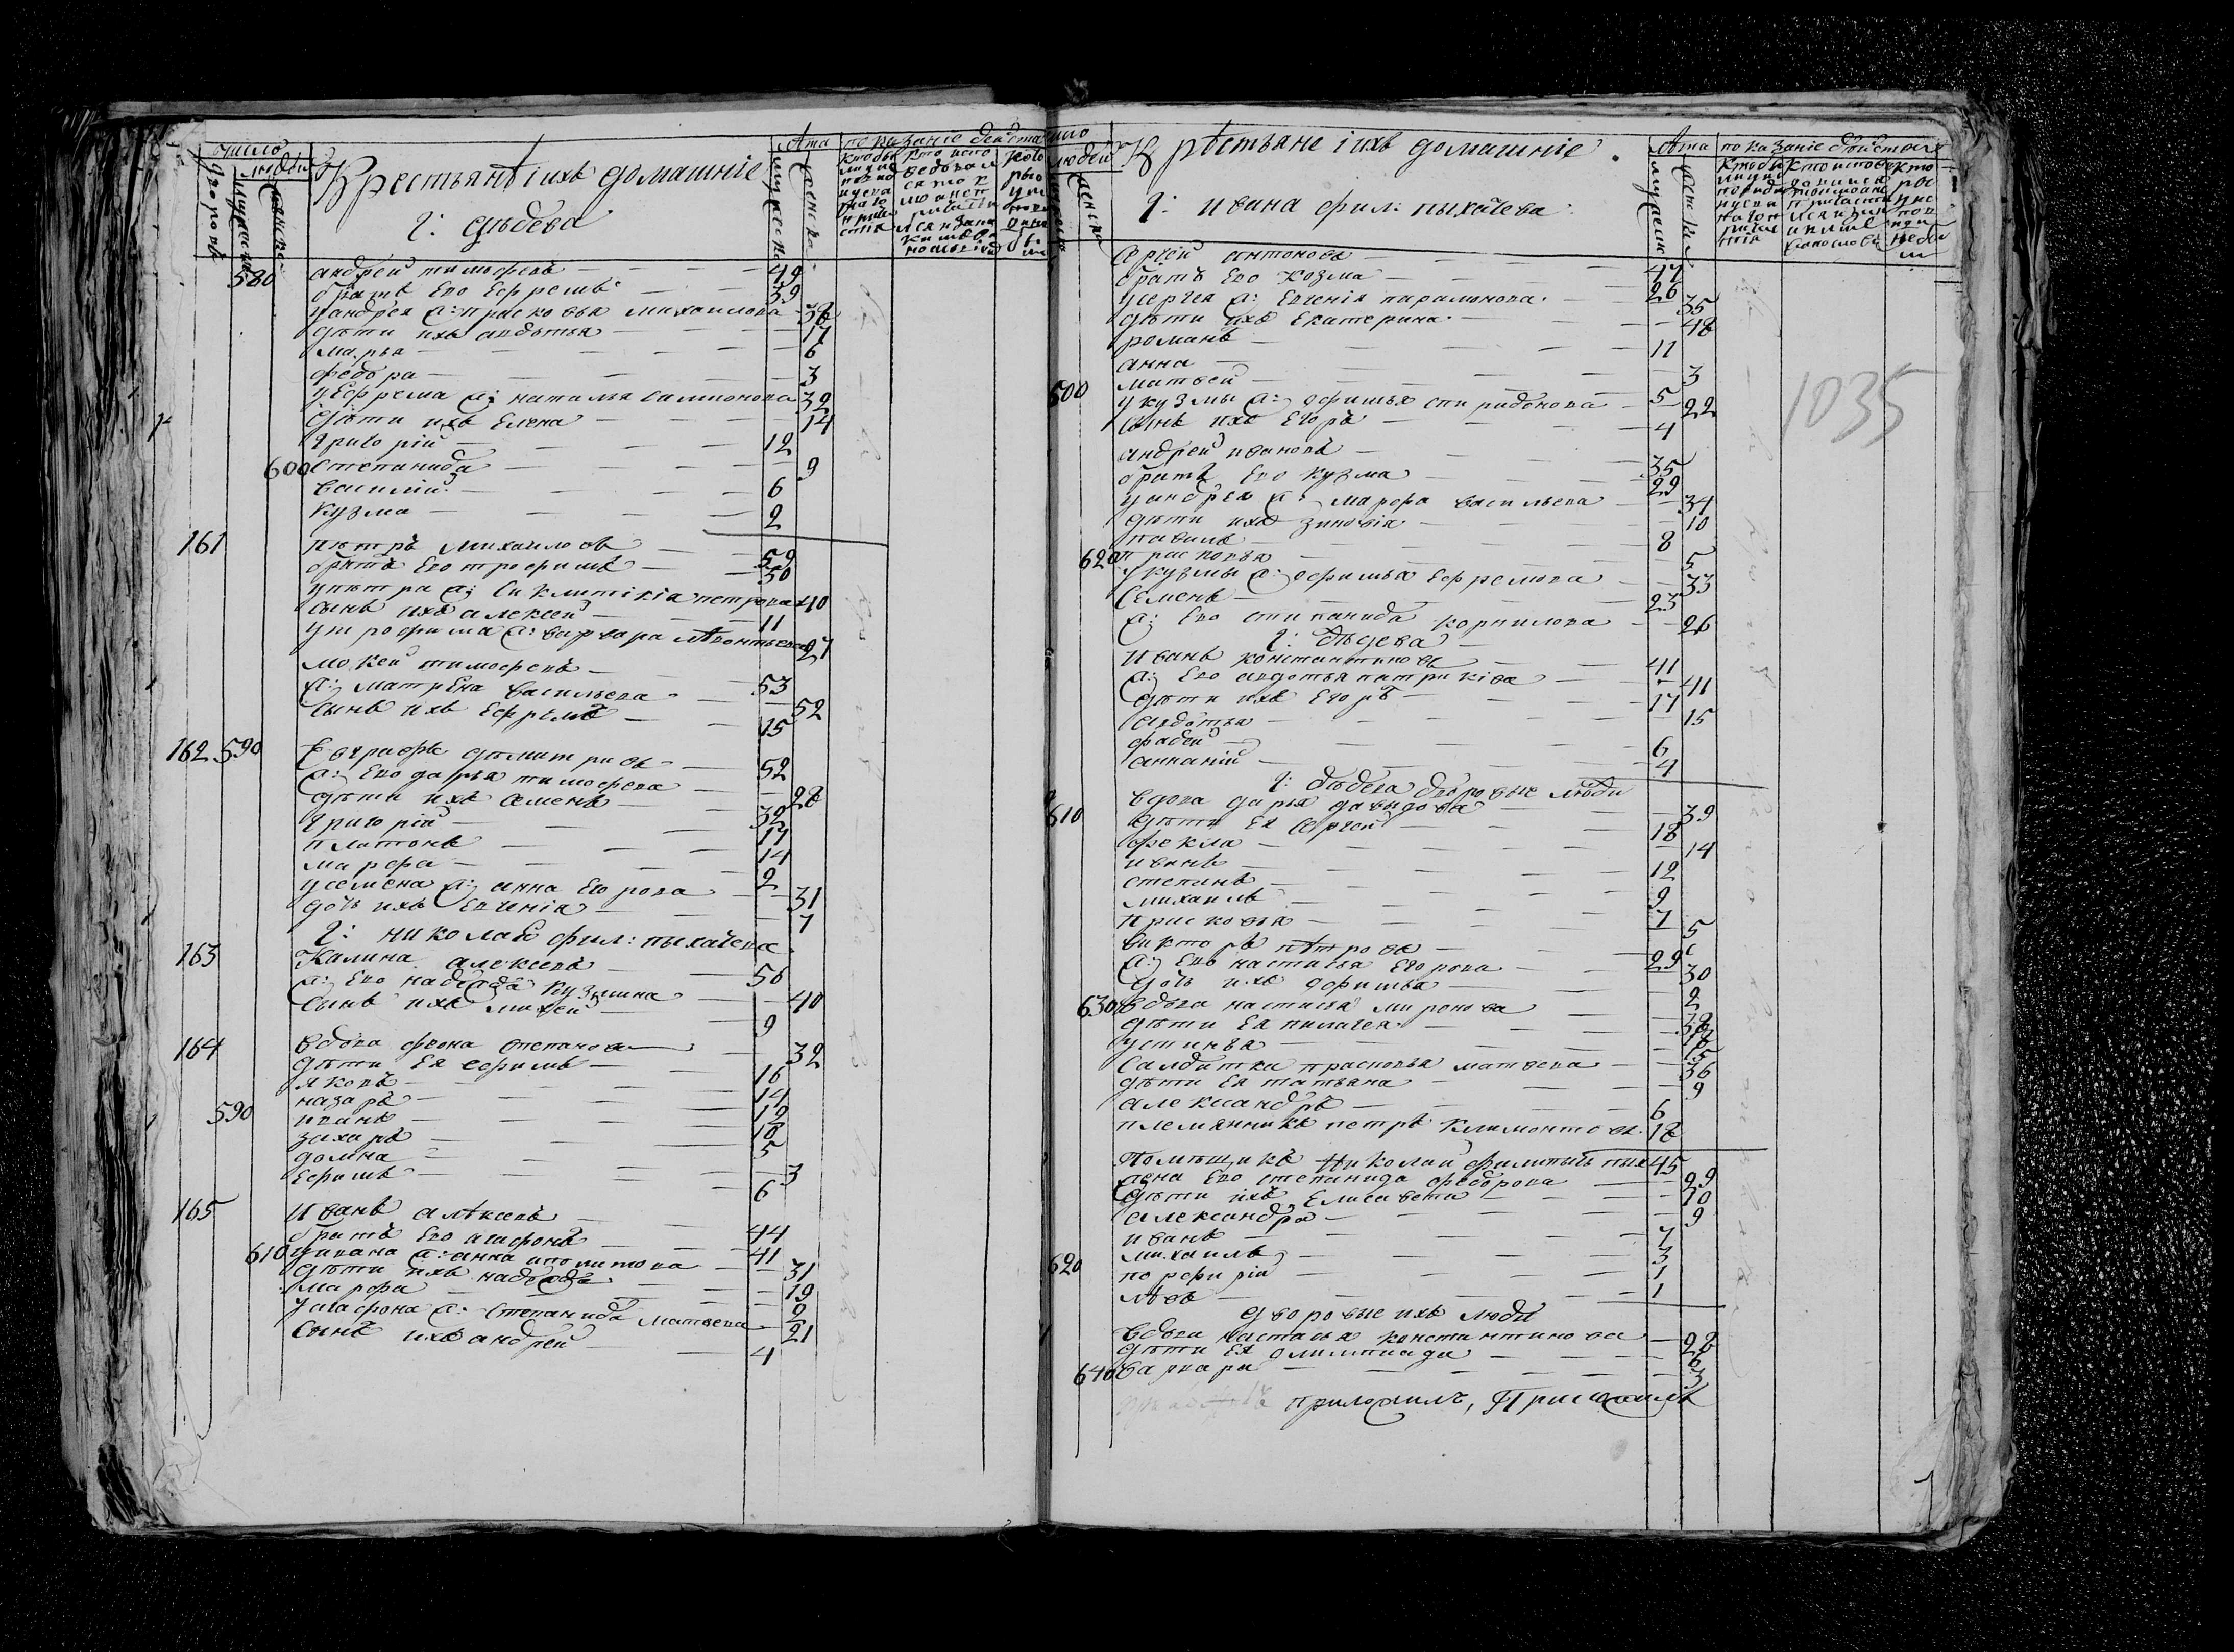 число
людей
дворовъ
мужеска
женска
Крестьянѣ i ихъ домашнiе
Лѣта
показанiе действа
мужеска
женска
г: дѣдева
580 андрей тимофеевъ — 49
братъ Ево Ефремъ — 39
у андрея ж: прасковья михаилова — 38
дѣти ихъ авдотья — 17
марья — 6
федора — 3
у Ефрема ж: наталья самионова 32
дѣти ихъ Елена — 14
григорiй — 12
600 степанида — 9
василiй — 6
кузма — 2
161 пѣтръ михаиловъ — 59
братъ Ево трофимъ — 50
у пѣтра ж: Синклитикiа петрова 40
сынъ ихъ алексей — 11
у трофима ж: варвара лѣонтьева 27
мокей тимофеевъ — 53
ж: матрена васильева — 52
сынъ ихъ Ефремъ — 15
162 590 Евграфъ дѣмитриевъ — 52
ж: Ево дарья тимофева — 28
дѣти ихъ семенъ — 32
григорiй — 17
платонъ — 14
марфа — 2
у семена ж: анна Егорова — 31
дочь ихъ Евгенiа — 7
г: николая фил: пыхачева
163 Калина алексеевъ — 56
ж: Ево надежда кузмина — 40
сынъ ихъ михей — 9
164 вдова феона степанова — 32
дѣти Ея ефимъ — 16
яковъ — 14
назаръ — 12
590 иванъ — 10
захаръ — 5
домна — 3
Ефимъ — 6
165 Иванъ алѣксеевъ — 44
братъ Ево агафонъ — 41
610 у ивана ж: анна иполитова — 31
дѣти ихъ надежда — 19
марфа — 2
у агафона ж: Степанида матвева — 21
сынъ ихъ андрей — 4
число
людей
женска
Крѣстьяне i ихъ домашнiе.
Лѣта
показанiе действа
мужеска
женска
г: ивана фил: пыхачева
сергей антоновъ — 47
братъ Ево козма — 26
у сергея ж: Евгенiя парамонова — 35
дѣти ихъ Екатерина — 18
романъ — 11
анна — 3
600 матвей — 5
у кузмы ж: офимья спиридонова — 22
сынъ ихъ Егоръ — 4
андрей ивановъ — 35
братъ Ево кузма — 29
у андрея ж: марфа васильева — 34
дѣти ихъ зиновiя — 10
павилъ — 8
620 прасковья — 5
у кузмы ж: офимья Ефремова — 33
Семенъ — 23
ж: Ево степанида корнилова — 26
г: дѣдева
Иванъ константиновъ — 41
ж: Ево авдотья патрикiва — 41
дѣти ихъ Егоръ — 17
авдотья — 15
фадей — 6
ананiй — 4
г: дѣдева дворовые люди
вдова дарья давыдова — 39
610 дѣти Ея сергей — 18
фекла — 14
иванъ — 12
степанъ — 9
михаилъ — 7
прасковья — 5
викторъ пѣтровъ — 29
ж: Ево настасья Егорова — 30
дочь ихъ офимья — 2
630 вдова настасья миронова — 38
дѣти Ея пилагея — 18
устинья — 15
Салдатка прасковья матвева — 36
дѣти Ея татьяна — 9
александръ — 6
племянникъ петръ климонтовъ. 18
Помѣщикъ Николай филипычь пых 45
жена Ево степанида федорова — 29
дѣти ихъ Елисавета — 10
александра — 9
иванъ — 7
михаилъ — 3
620 порфирiй — 1
лѣвъ — 1
дворовые ихъ люди
вдова наталья константинова — 28
дѣти Ея олимпиада — 6
640 варвара — 3
приложилъ, Пригласилъ
1035